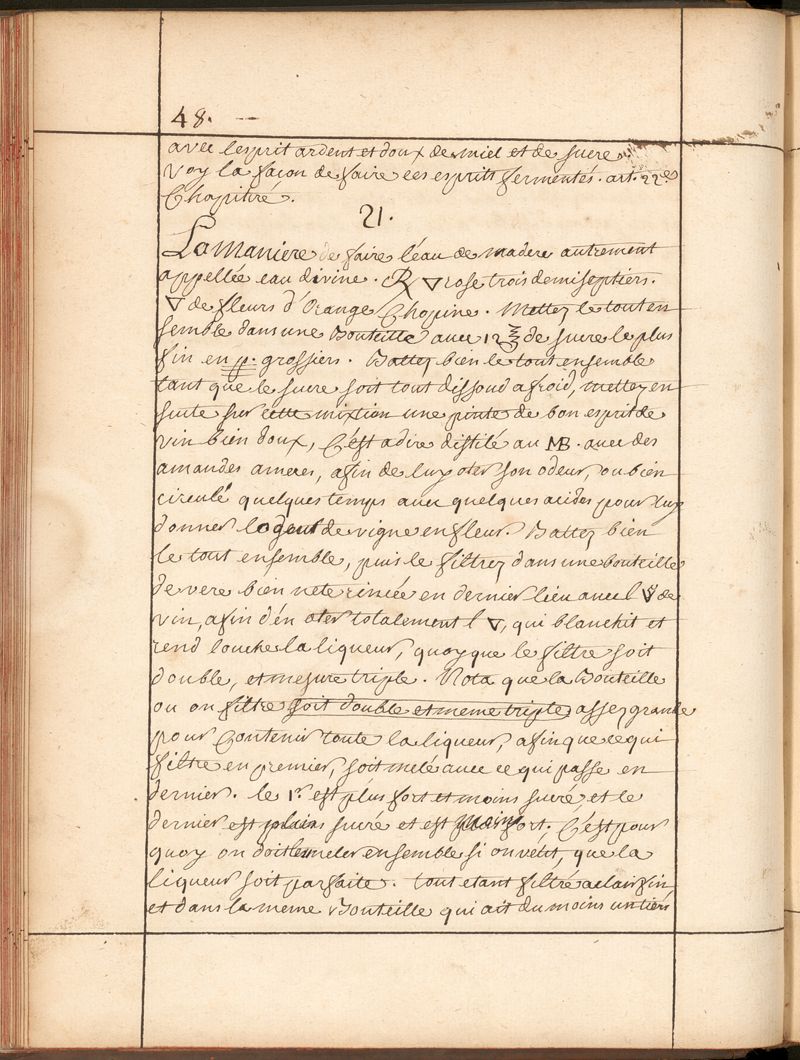 48.
avec l'esprit ardent et doux de miel et de sucre
voy la façon de faire ces esprits fermentés. art. 22e.
Chapitré.
21.
La Maniere de faire l'éau de madere autrement
appellée eau divine. ℞ 🜄 rose trois demiseptiers.
🜄 de fleurs d'Orange Chopine. Mettez le tout en
semble dans une Bouteille avec 12 ℥ de sucre le plus
fin en p. grossiers. Battez bien le tout ensemble
tant que le sucre soit tout dissoud a froid, mettez en
suite sur cette mixtion une pinte de bon esprit de
vin bien doux, C'est a dire distilé au MB. avec des
amandes ameres, afin de luy oter son odeur, ou bien
circulé quelques temps avec quelques acides pour luy
donner l'ogout de vigne en fleur. Battez bien
le tout ensemble, puis le filtrez dans une bouteille
de vere bien nete rincée en dernier lieu avec l de
vin, afin d'én oter totalement l 🜄, qui blanchit et
rend louche la liqueur, quoyque le filtre soit
double, et mesure triple. Nota que la Bouteille
ou on filtre soit double et meme triple assez grande
pour Contenir toute la liqueur, afin que ce qui
filtre en premier, soit melé avec ce qui passe en
dernier. le 1er. est plus fort et moins sucré, et le
dernier est plus sucré et est Moins fort. C'est pour
quoy on doit les meler ensemble si on veut, que la
liqueur soit parfaite. tout etant filtré a clair fin
et dans la meme Bouteille qui ait du moins un tiers